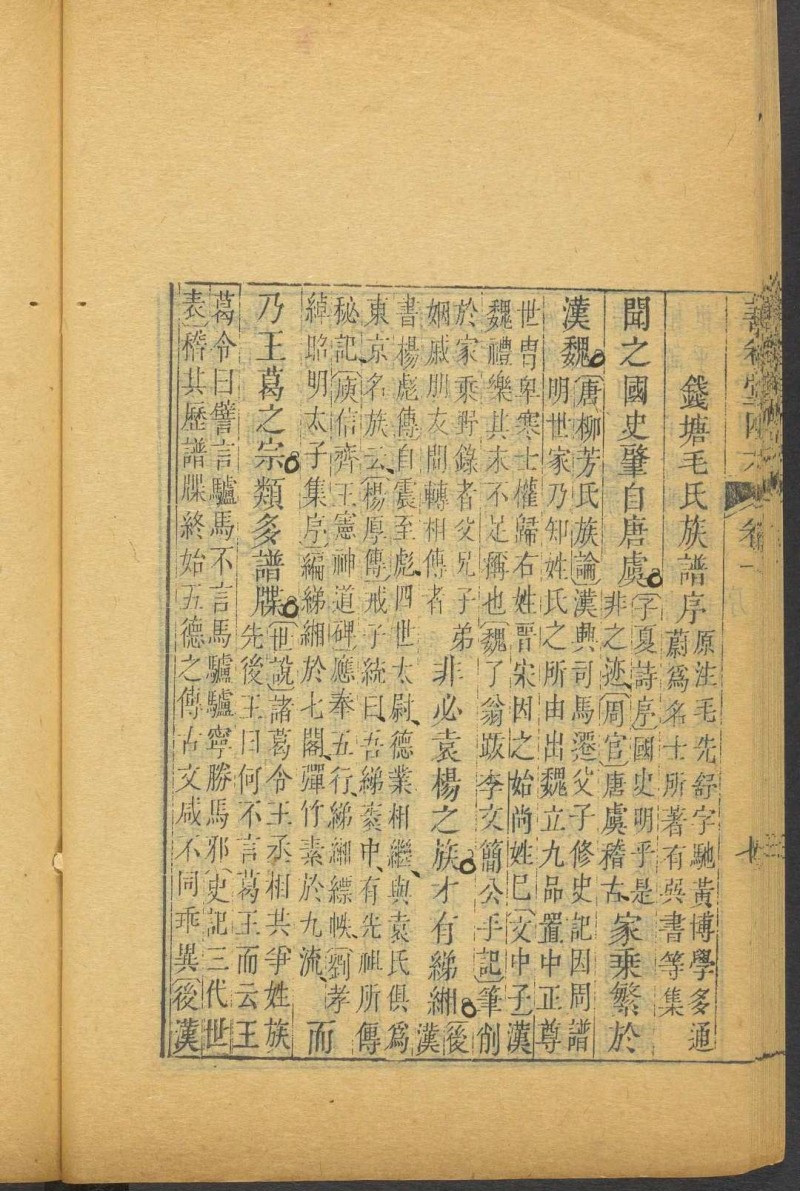 善卷堂四六 卷一 七
錢塘毛氏族譜序
原注毛先舒字馳黃博學多通
蔚為名士所著有吳書等集
聞之國史肇自唐虞
子夏詩序國史明乎是
非之迹周官唐虞稽古
家乘繁於
漢魏
唐柳芳氏族論漢興司馬遷父子修史記因周譜
明世家乃知姓氏之所由出魏立九品置中正尊
世胄卑寒士權歸右姓晉宋因之始尚姓巳文中子漢
魏禮樂其末不足稱也魏了翁跋李文簡公手記筆削
於家乘野錄者父兄子弟
姻戚朋友閒轉相傳者
非必袁楊之族才有綈緗
後
漢
書楊彪傳自震至彪四世太尉德業相繼與袁氏俱為
東京名族云楊厚傳戒子統曰吾綈袠中有先祖所傳
秘記庾信齊王憲神道碑應奉五行綈緗縹帙劉孝
綽昭明太子集序編綈緗於七閣彈竹素於九流
而
乃王葛之宗類多譜牒
世說諸葛令王丞相共爭姓族
先後王曰何不言葛王而云王
葛令曰譬言驢馬不言馬驢驢寧勝馬邪史記三代世
表稽其歷譜牒終始五德之傳古文咸不同乖異後漢